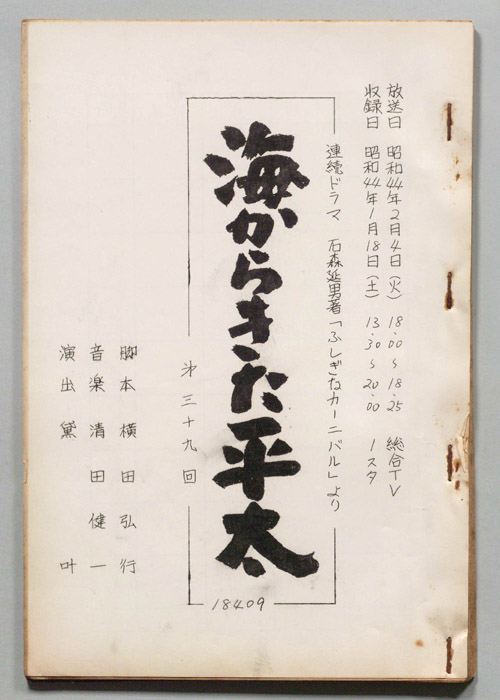 放送日 昭和44年2月4日(火) 18.00～18.25 総合TV
収録日 昭和44年1月18日(土) 13.30～20.00 1スタ
連続ドラマ 石森延男著「ふしぎなカーニバル」より
海からきた平太
第三十九回
18409
脚本 横田弘行
音楽 清田健一
演出 黛叶